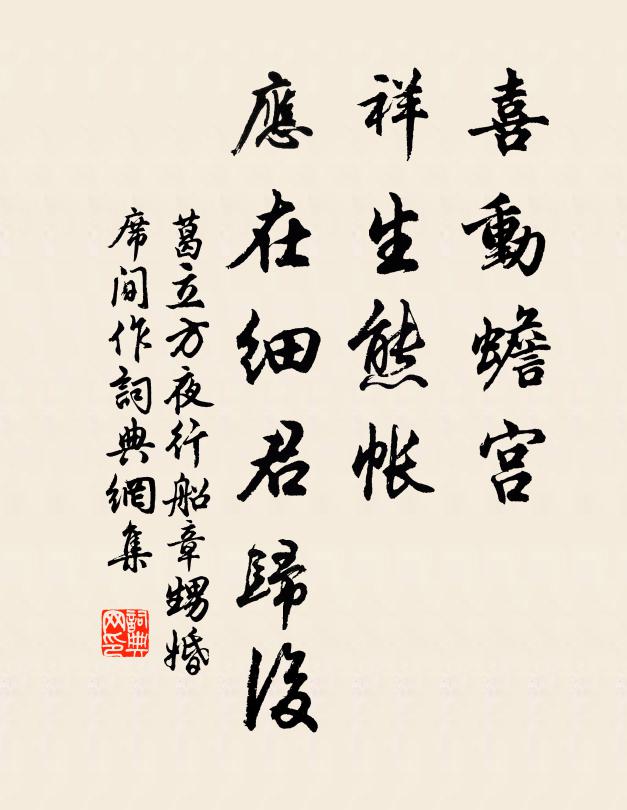 喜動蟾宮
祥生熊帳
應在細君歸後
葛立方夜行船章甥婚
席间作詞典網集
詞典网印